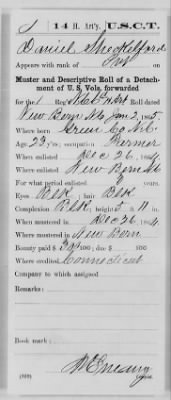 S 14 H. Art'y. U.S.C.T.
Daniel Shackelford
Appears with rank of Pvt on
Muster and Descriptive Roll of a Detach-
ment of U. S. Vols. forwarded
for the 1 Reg't Roll dated
New Bern NC Jan 2, 1865.
Where born Green Co NC
Age 23 y'rs; occupation Farmer
When enlisted Dec 26, 1864
Where enlisted New Bern NC
For what period enlisted years.
Eyes Blk; hair Blk
Complexion Blk; height 5 ft. 11 in.
When mustered in Dec 26, 1864
Where mustered in New Bern
Bounty paid $ 100; due $ 100
Where credited Connecticut
Company to which assigned
Remarks:
Book mark:
Copyist.